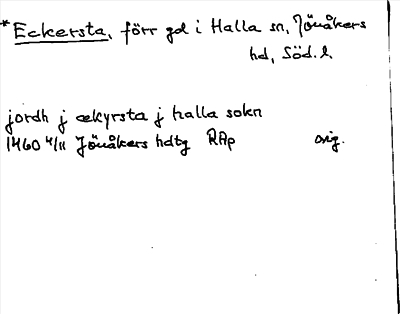 *Eckersta, förr gd i Halla sn, Jönåkers
hd, Söd.l.
jordh j ækyrsta j halla sokn
1460 4/11 Jönåkers hdtg RAp orig.